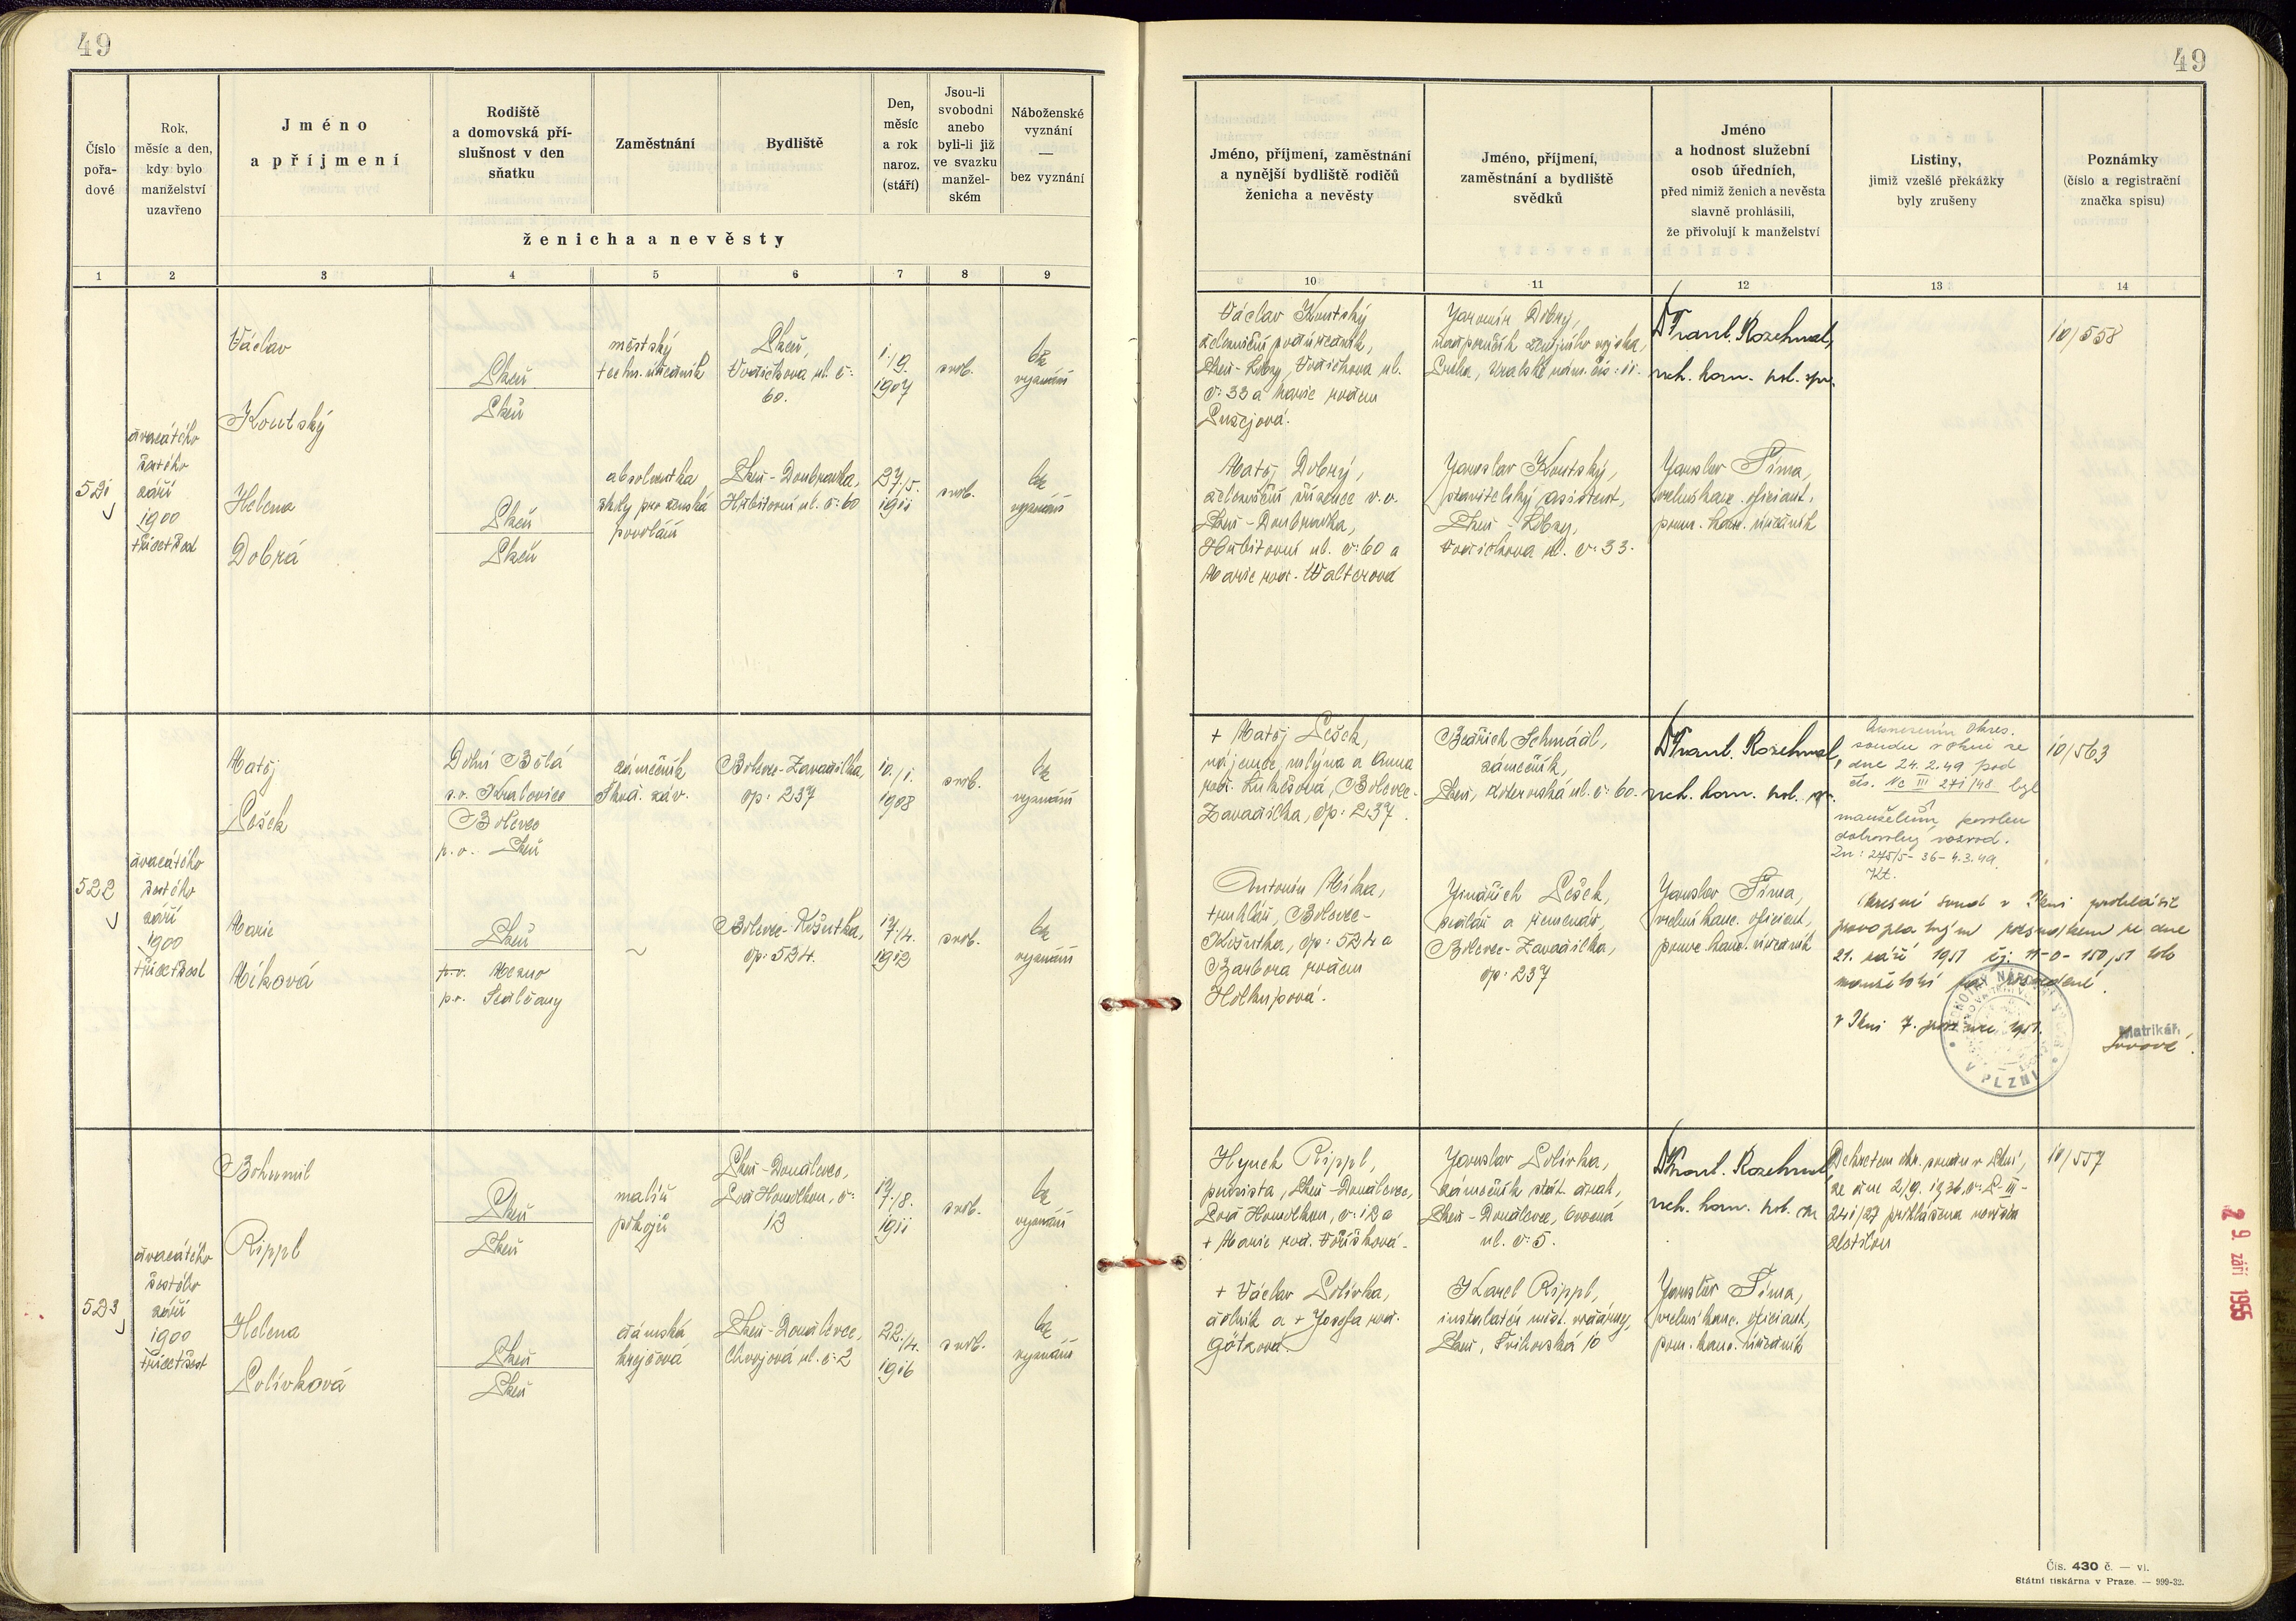 49
49
Číslo
pořa-
dové
Rok,
měsíc a den,
kdy bylo
manželství
uzavřeno
Jméno
a příjmení
Rodiště
a domovská pří-
slušnost v den
sňatku
Zaměstnání
Bydliště
Den,
měsíc
a rok
naroz.
(stáří)
Jsou-li
svobodni
anebo
byli-li již
ve svazku
manžel-
ském
Náboženské
vyznání
—
bez vyznání
ženicha a nevěsty
1 2 3 4 5 6 7 8 9
Jméno, příjmení, zaměstnání
a nynější bydliště rodičů
ženicha a nevěsty
Jméno, příjmení,
zaměstnání a bydliště
svědků
Jméno
a hodnost služební
osob úředních,
před nimiž ženich a nevěsta
slavně prohlásili,
že přivolují k manželství
Listiny,
jimiž vzešlé překážky
byly zrušeny
Poznámky
(číslo a registrační
značka spisu)
10 11 12 13 14
521
dvacátého
šestého
září
1900
třicetšest
Václav
Koutský
Plzeň
Plzeň
městský
techn. úředník
Plzeň,
ul. č:
60.
1./9.
1907
svob.
bez
vyznání
Helena
Dobrá
Plzeň
Plzeň
absolventka
školy pro ženská
povolání
Plzeň-Doubravka,
Hřbitovní ul. č: 60
27./5.
1911
svob.
bez
vyznání
Václav Koutský
železniční podúředník,
Plzeň-Lobzy, ul.
č: 33 a Marie rodem
Matěj Dobrý,
železniční zřízenec v. v.
Plzeň-Doubravka,
Hřbitovní ul. č: 60 a
Marie roz. Walterová
Jaromír Dobrý,
Jaroslav Koutský,
stavitelský asistent,
Plzeň-Lobzy,
ul. č. 33.
Dr Frant. Rozehnal,
rch. kom. pol. spr.
Jaroslav Šíma,
velmi kanc. oficiant,
pom. kanc. úředník
10/558
522
dvacátého
šestého
září
1900
třicetšest
Matěj
Pešek
Dolní Bělá
s.o. Kralovice
Bolevec
p.o. Plzeň
zámečník
Škod. záv.
Bolevec-Zavadilka,
čp: 237
10./1.
1908
svob.
bez
vyznání
Marie
Míková
Plzeň
p.o. Sedlčany
~
Bolevec-Košutka,
čp: 524.
17./4.
1912
svob.
bez
vyznání
+ Matěj Pešek,
nájemce mlýna a Anna
roz. Lukešová, Bolevec-
Zavadilka, čp: 237.
Antonín Míka,
truhlář, Bolevec-
Košutka, čp: 524 a
Barbora rodem
Holkupová.
Bedřich Schmáál,
zámečník,
Plzeň, ul. č: 60.
Jindřich Pešek,
sedlář a řemenář,
Bolevec-Zavadilka,
čp: 237
Dr Frant. Rozehnal,
rch. kom. pol. spr.
Jaroslav Šíma,
kanc. oficiant,
pom. kanc. úředník
Usnesením okres.
soudu v Plzni ze
dne 24.2.49 pod
čís. Nc III 271/48 byl
manželům povolen
dobrovolný rozvod.
Zn: 275/5-36-4.3.49.
Kt.
Okresní soud v Plzni prohlásil
pravoplatným rozsudkem ze dne
21. září 1951 čj: 11-0-150/51 toto
manželství za rozvedené.
V Plzni 7. 1951.
Matrikář:
V PLZNI
10/563
523
dvacátého
šestého
září
1900
třicetšest
Bohumil
Rippl
Plzeň
Plzeň
malíř
pokojů
Plzeň-Doudlevce,
Pod Homolkou, č:
12
17./8.
1911
svob.
bez
vyznání
Helena
Polívková
Plzeň
Plzeň
dámská
krejčová
Plzeň-Doudlevce,
Chvojová ul. č: 2
22./4.
1916
svob.
bez
vyznání
Hynek Rippl,
Plzeň-Doudlevce,
Pod Homolkou, č: 12 a
+ Marie roz. Voříšková.
+ Václav Polívka,
dělník a + Josefa roz.
Götzová.
Jaroslav Polívka,
zámečník stát. drah,
Plzeň-Doudlevce, Ovocná
ul. č. 5.
Karel Rippl,
instalatér měst. vodárny,
Plzeň, 10
Dr Frant. Rozehnal,
rch. kom. pol. spr.
Jaroslav Šíma,
kanc. oficiant,
pom. kanc. úředník
Dekretem okr. soudu v Plzni,
ze dne 2./9. 1936, č: P-III-
241/27 prohlášena nevěsta
zletilou
10/557
29. září 1955
Čís. 430 č. — vl.
Státní tiskárna v Praze. — 999-32.